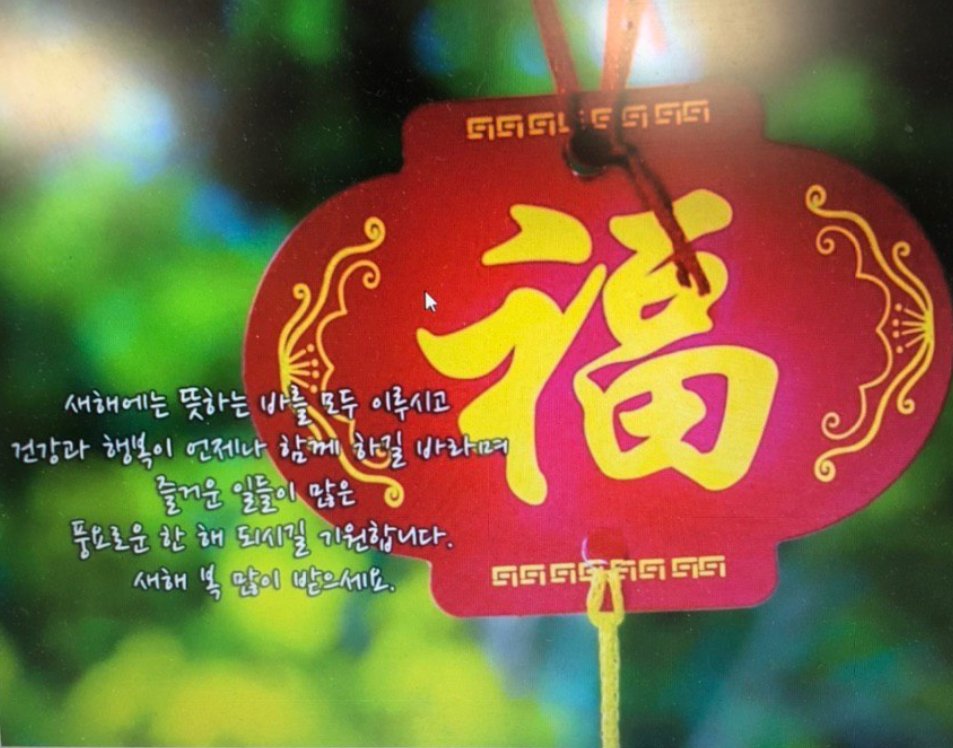 福
새해에는 뜻하는 바를 모두 이루시고
건강과 행복이 언제나 함께 하길 바라며
즐거운 일들이 많은
풍요로운 한 해 되시길 기원합니다.
새해 복 많이 받으세요.